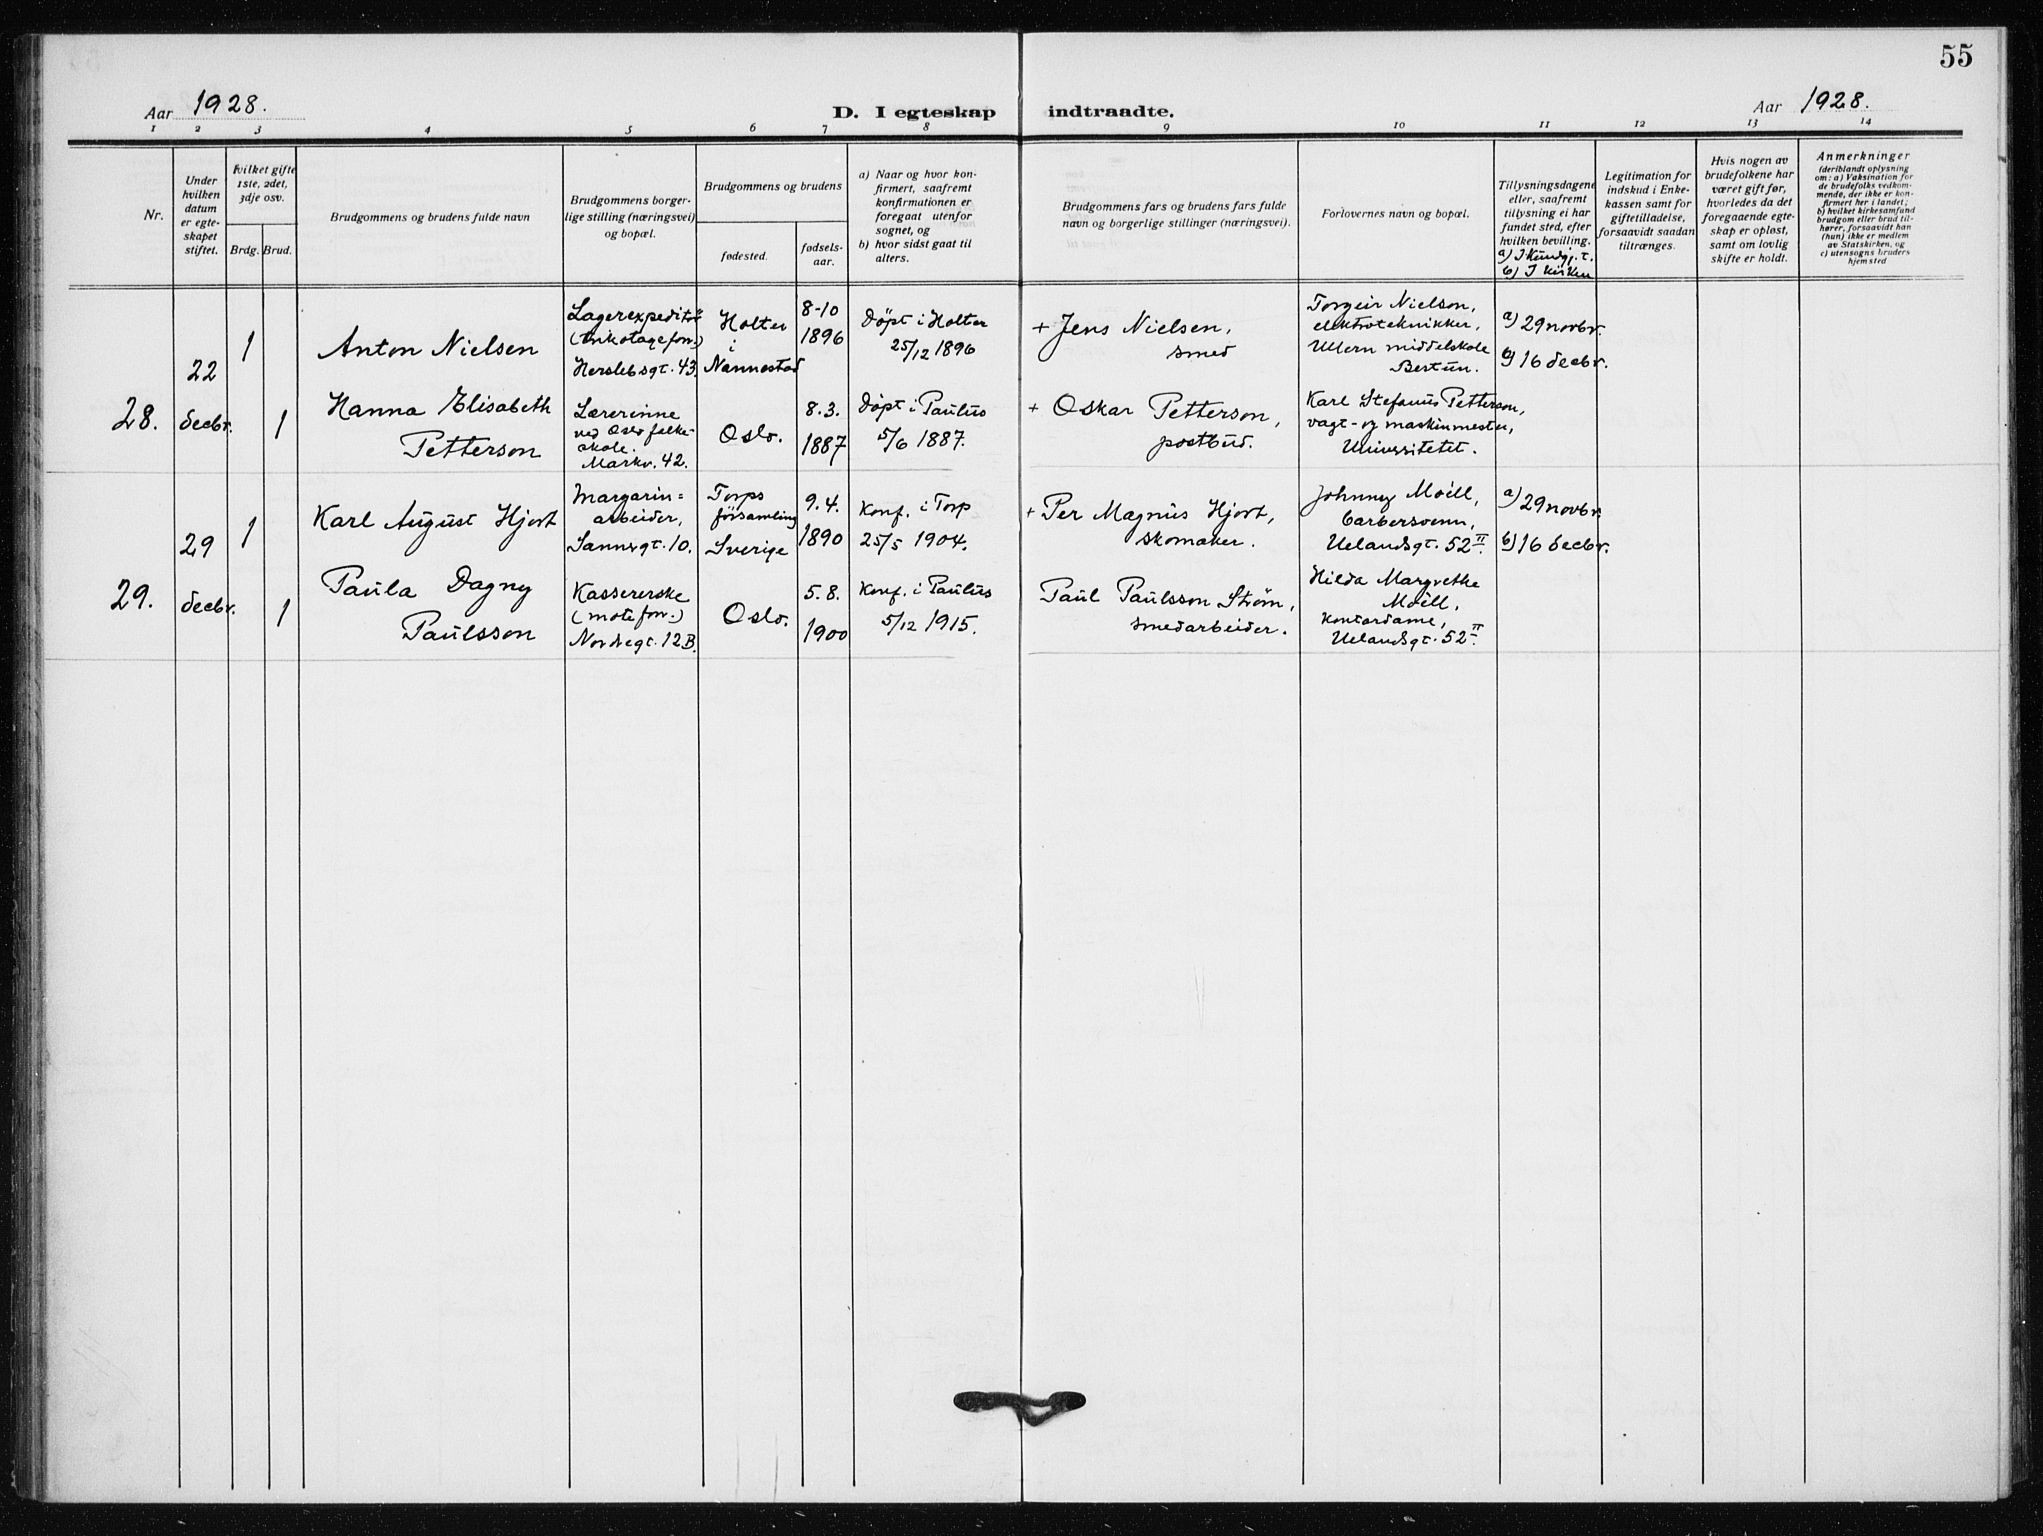 55
Aar 1928.
D. I egteskap indtraadte.
Aar 1928.
1 2 3 4 5 6 7 8 9 10 11 12 13 14
Nr.
Under
hvilken
datum
er egte-
skapet
stiftet.
hvilket gifte
1ste, 2det,
3dje osv.
Brdg. Brud.
Brudgommens og brudens fulde navn
Brudgommens borger-
lige stilling (næringsvei)
og bopæl.
Brudgommens og brudens
fødested.
fødsels-
aar.
a) Naar og hvor kon-
firmert, saafremt
konfirmationen er
foregaat utenfor
sognet, og
b) hvor sidst gaat til
alters.
Brudgommens fars og brudens fars fulde
navn og borgerlige stillinger (næringsvei).
Forlovernes navn og bopæl.
Tillysningsdagene
eller, saafremt
tillysning ei har
fundet sted, efter
hvilken bevilling.
a) I Kundgj. t.
b) I kirken
Legitimation for
indskud i Enke-
kassen samt for
giftetilladelse,
forsaavidt saadan
tiltrænges.
Hvis nogen av
brudefolkene har
været gift før,
hvorledes da det
foregaaende egte-
skap er opløst,
samt om lovlig
skifte er holdt.
Anmerkninger
(deriblandt oplysning
om: a) Vaksination for
de brudefolks vedkom-
mende, der ikke er kon-
firmert her i landet;
b) hvilket kirkesamfund
brudgom eller brud til-
hører, forsaavidt han
(hun) ikke er medlem
av Statskirken, og
c) utensogns bruders
hjemsted
28.
22
decbr.
1
Anton Nielsen
Lagerexpeditør
(trikotageforr.)
Herslebsgt. 43.
Holter
i
Nannestad
8-10
1896
Døpt i Holter
25/12 1896
+ Jens Nielsen,
smed
Torgeir Nielson,
elektrotekniker,
Ullern middelskole
Bestun.
a) 29 novbr.
b) 16 decbr.
1
Hanna Elisabeth
Petterson
Lærerinne
ved Oslo folke-
skole.
Markv. 42.
Oslo.
8.3.
1887
Døpt i Paulus
5/6 1887.
+ Oskar Petterson,
postbud.
Karl Stefanus Petterson,
vagt- og maskinmester,
Universitetet.
29.
29
decbr.
1
Karl August Hjort
Margarin=
arbeider,
Sannergt. 10.
Torps
församling
Sverige
9.4.
1890
Konf. i Torp
25/5 1904.
+ Per Magnus Hjort,
skomaker.
Johnny Moëll,
barbersvenn,
Uelandsgt. 52 II.
a) 29 novbr.
b) 16 decbr.
1
Paula Dagny
Paulsson
Kassererske
(moteforr.)
Nordregt. 12 B.
Oslo.
5.8.
1900
Konf. i Paulus
5/12 1915.
Paul Paulsson Strøm,
smedarbeider.
Hilda Margrethe
Moëll,
kontordame,
Uelandsgt. 52 II.